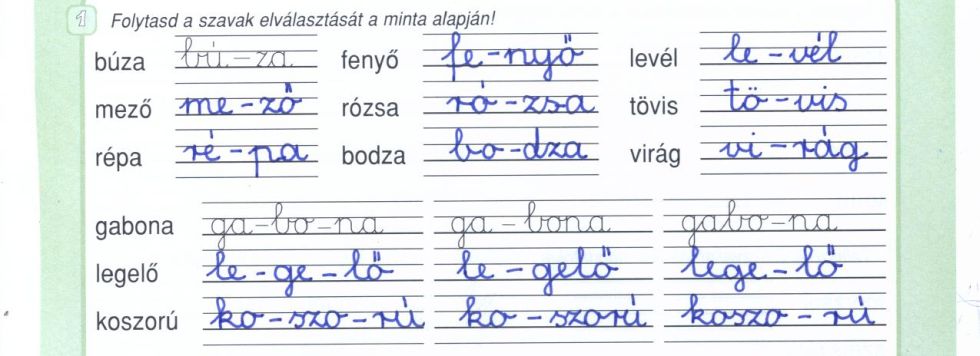 1 Folytasd a szavak elválasztását a minta alapján!
búza bú-za fenyő fe-nyő levél le-vél
mező me-ző rózsa ró-zsa tövis tö-vis
répa ré-pa bodza bo-dza virág vi-rág
gabona ga-bo-na ga-bona gabo-na
legelő le-ge-lő le-gelő lege-lő
koszorú ko-szo-rú ko-szorú koszo-rú